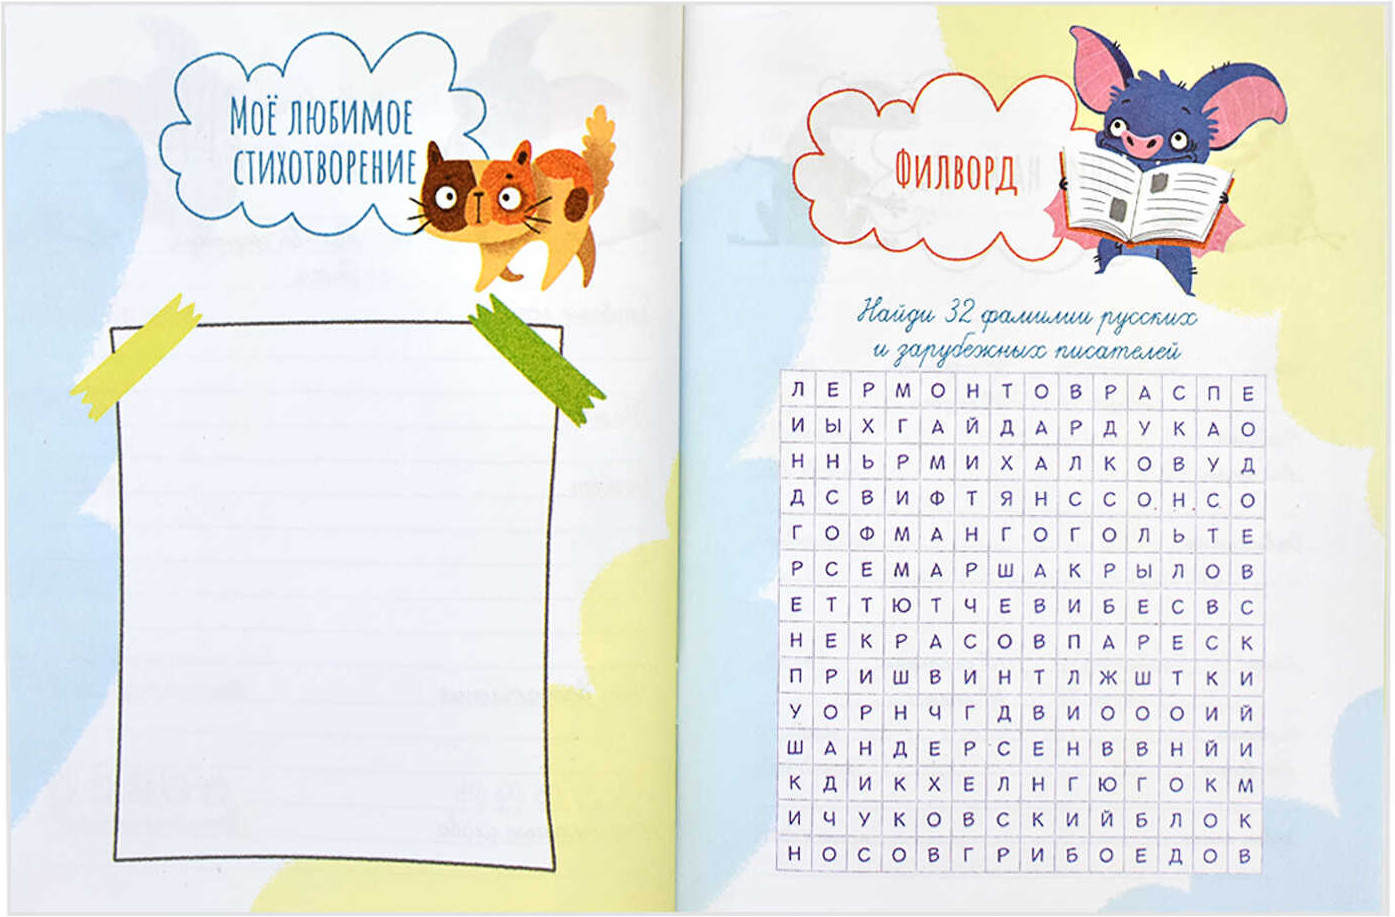 МОЁ ЛЮБИМОЕ
СТИХОТВОРЕНИЕ
ФИЛВОРД
Найди 32 фамилии русских
и зарубежных писателей
Л Е Р М О Н Т О В Р А С П Е
И Ы Х Г А Й Д А Р Д У К А О
Н Н Ь Р М И Х А Л К О В У Д
Д С В И Ф Т Я Н С С О Н С О
Г О Ф М А Н Г О Г О Л Ь Т Е
Р С Е М А Р Ш А К Р Ы Л О В
Е Т Т Ю Т Ч Е В И Б Е С В С
Н Е К Р А С О В П А Р Е С К
П Р И Ш В И Н Т Л Ж Ш Т К И
У О Р Н Ч Г Д В И О О О И Й
Ш А Н Д Е Р С Е Н В В Н Й И
К Д И К Х Е Л Н Г Ю Г О К М
И Ч У К О В С К И Й Б Л О К
Н О С О В Г Р И Б О Е Д О В